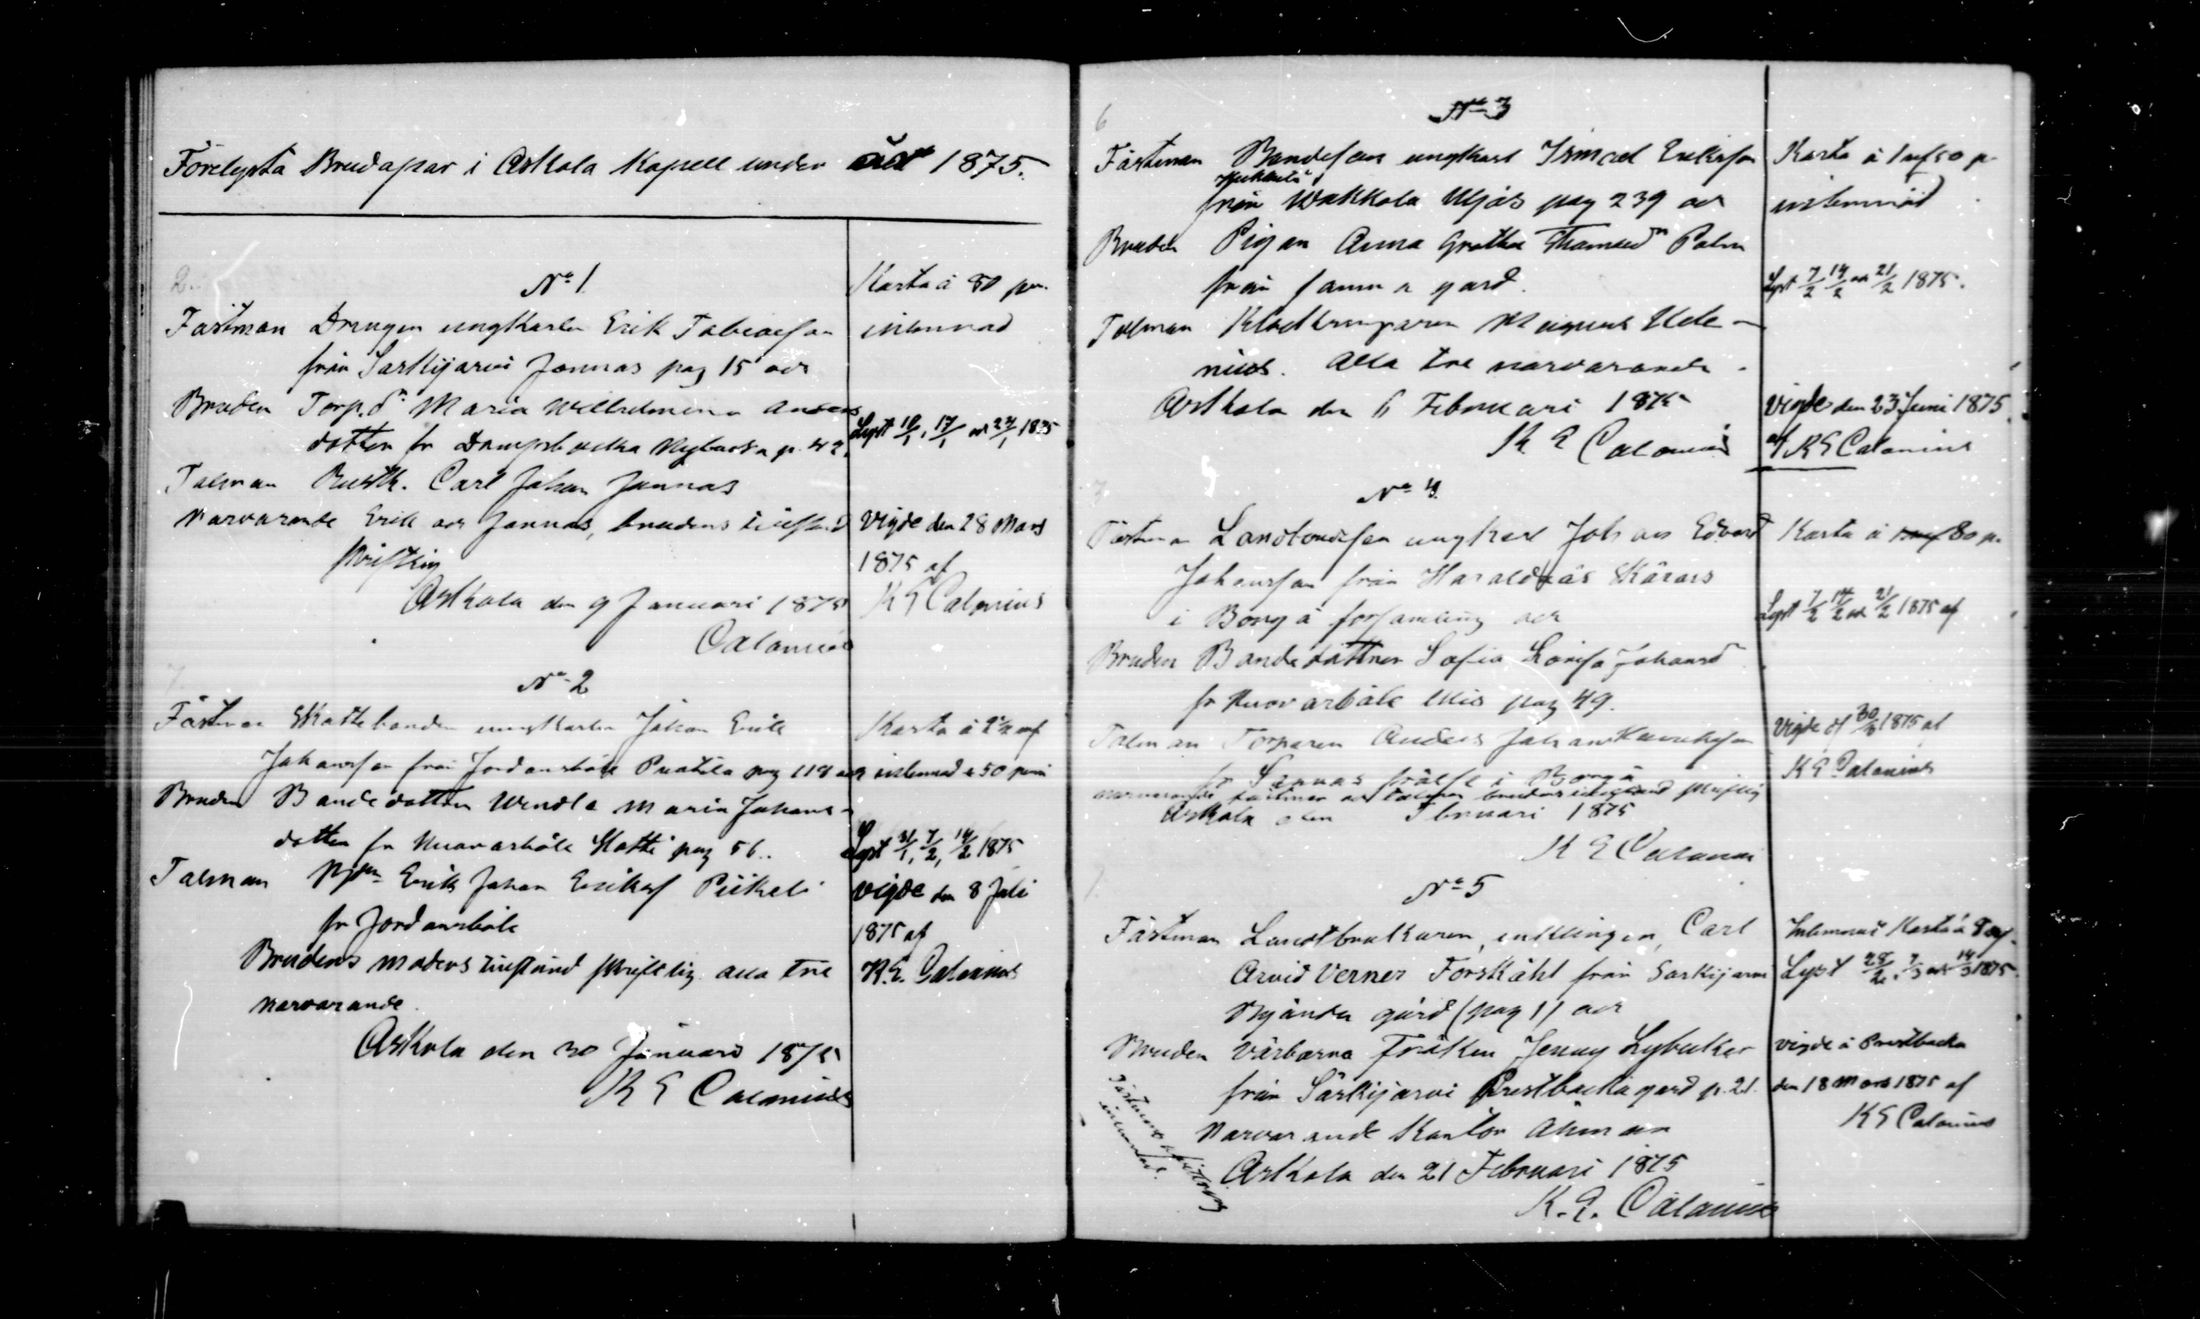 Förelysta Brudapar i Askola Kapell under året 1875.
2.
No 1
Fästman Drengen ungkarlen Erik Tobiasson
från Särkijärvi Jonnas pag 15 och
Bruden Torp.dr Maria Wilhelmina Anders
dotter fr p. 42.
Talman Rusth. Carl Johan Jonnas
Närvarande Erik och Jonnas, brudens tillstånd
skriftlig
Askola den 9 Januari 1875
Calonius
Karta à 80 pen.
inlemnad
Lyst 10/1, 17/1 och 24/1 1875
Vigde den 28 Mars
1875 af
K E Calonius
No 2
Fästman Skattebonden ungkarlen Johan Erik
Johansson från Jordansböle Puotila pag 118 och
Bruden Bondedottren Wendla Maria Johans-
dotter fr Huvarböle Matti pag 56.
Talman Erik Johan Eriks
fr Jordansböle
Brudens moders tillstånd skriftlig alla tre
närvarande.
Askola den 30 Januari 1875
K E Calonius
Karta à
inlemnad
Lyst 31/1, 7/2, 14/2 1875
Vigde den 8 Juli
1875 af
K. E. Calonius
6
No 3
Fästman Bondeson ungkarl Ismael Eriksson
från Wakkola Uljas pag 239 och
Bruden Pigan Anna Gretha Thomasdr Palm
från samma gård.
Talman Klockringaren Magnus Hele-
nius. Alla tre närvarande.
Askola den 6 Februari 1875
K E Calonius
Karta à 1 mf 50 p.
inlemnad
Lyst 7/2 14/2 och 21/2 1875.
Vigde den 23 Juni 1875
af K E Calonius
No 4
Fästman Landbondeson ungkarl Johan Edvard
Johansson från Haraldsås Skärars
i Borgå församling och
Bruden Bondedottren Sofia Lovisa Johansd
fr Huvarböle Ulis pag 49.
Talman Torparen Anders Johan Henriksson
fr Sannäs i Borgå
närvarande fästman och talman brudens tillstånd skriftlig
Askola den Februari 1875
K E Calonius
Karta à 80 p.
Lyst 7/2 14/2 och 21/2 1875 af
Vigde 1875 af
K E Calonius
No 5
Fästman Landtbrukaren, enklingen, Carl
Arvid Verner Forskåhl från Särkijärvi
Nyända gård (pag 1) och
Bruden Välborna Fröken Jenny Lybecker
från Särkijärvi Prestbacka gård p. 21.
Närvarande Kantor Åhman
Askola den 21 Februari 1875
K. E. Calonius
Fästmans
inlemnad.
Inlemnat Karta à
Lyst 28/2, 7/3 och 14/3 1875.
Vigde å Prestbacka
den 18 Mars 1875 af
K E Calonius